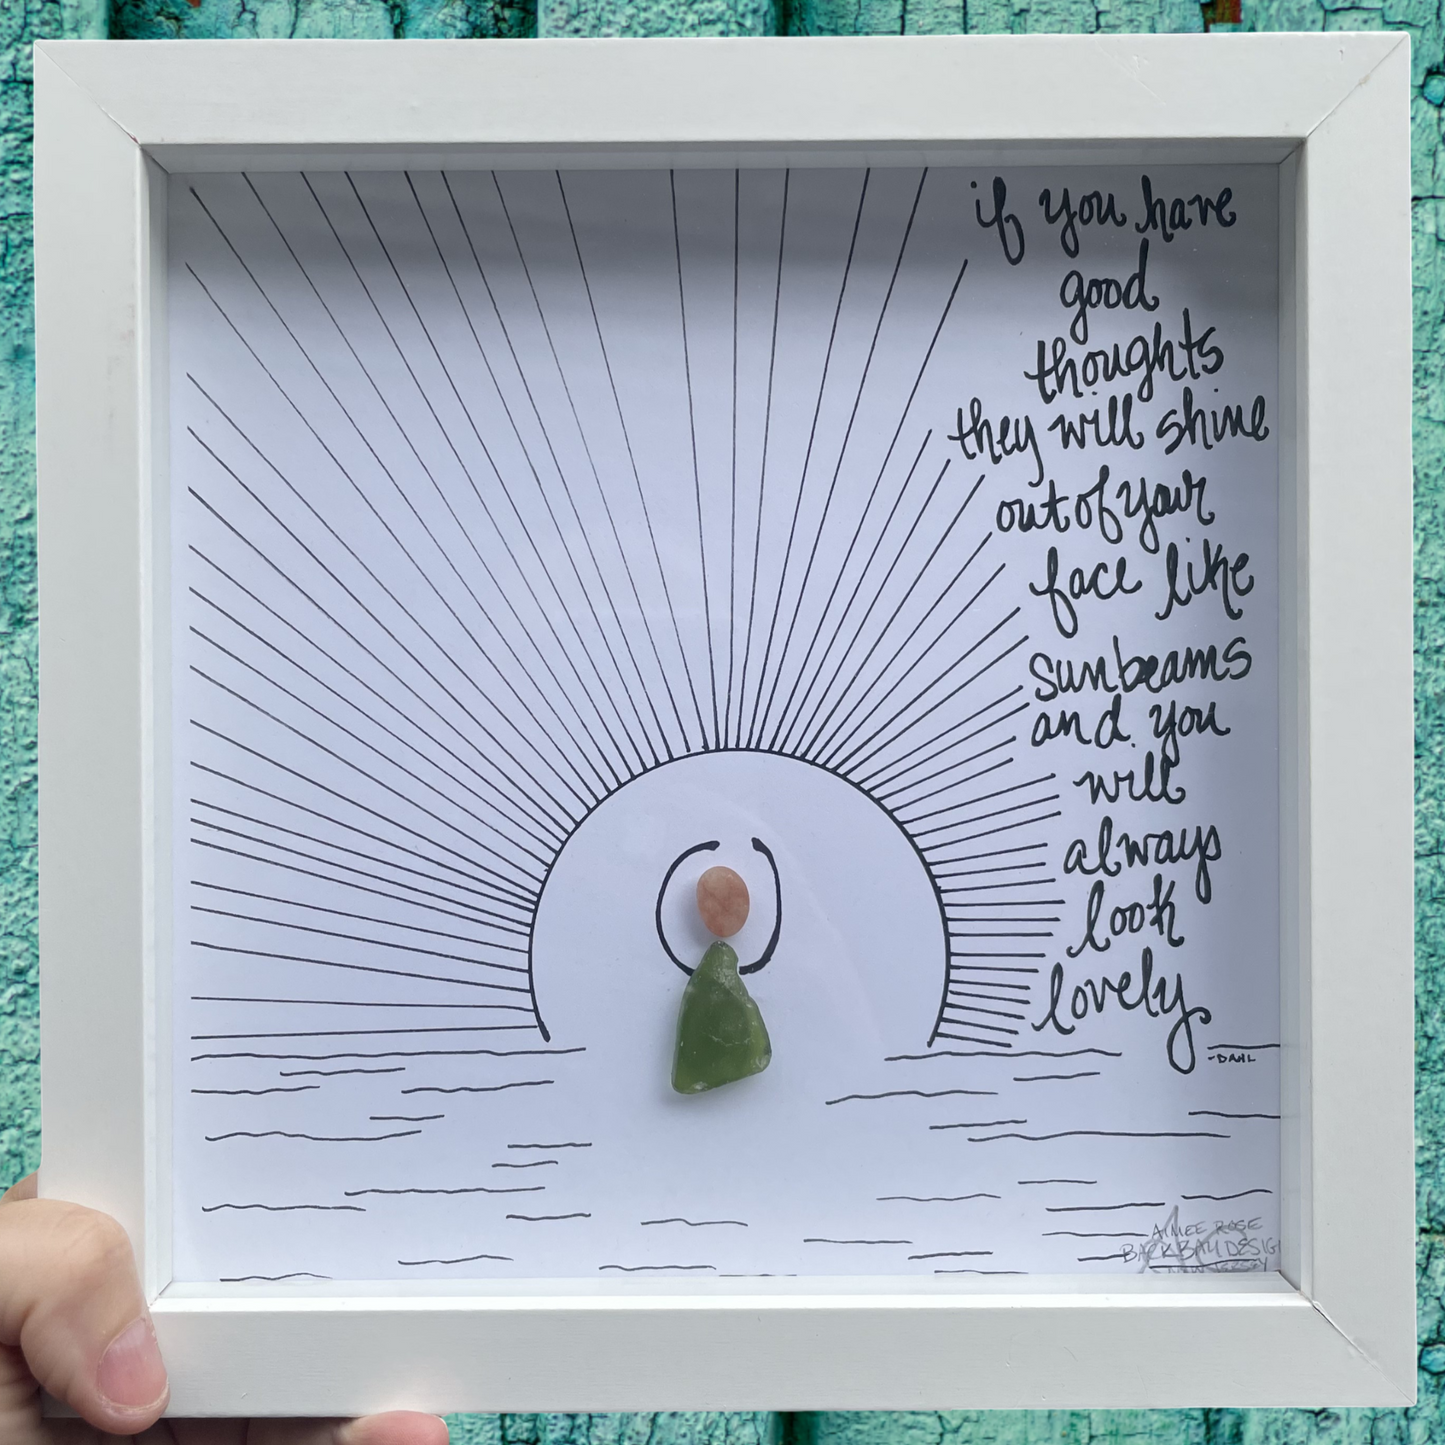 if you have
good
thoughts
they will shine
out of your
face like
sunbeams
and you
will
always
look
lovely
-DAHL
AIMEE ROSE
BACK BAY DESIGN
NEW JERSEY